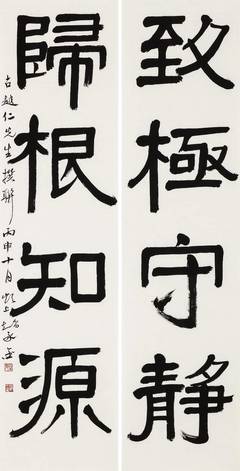 致極守靜
歸根知源
仁先生撰聯丙申十月